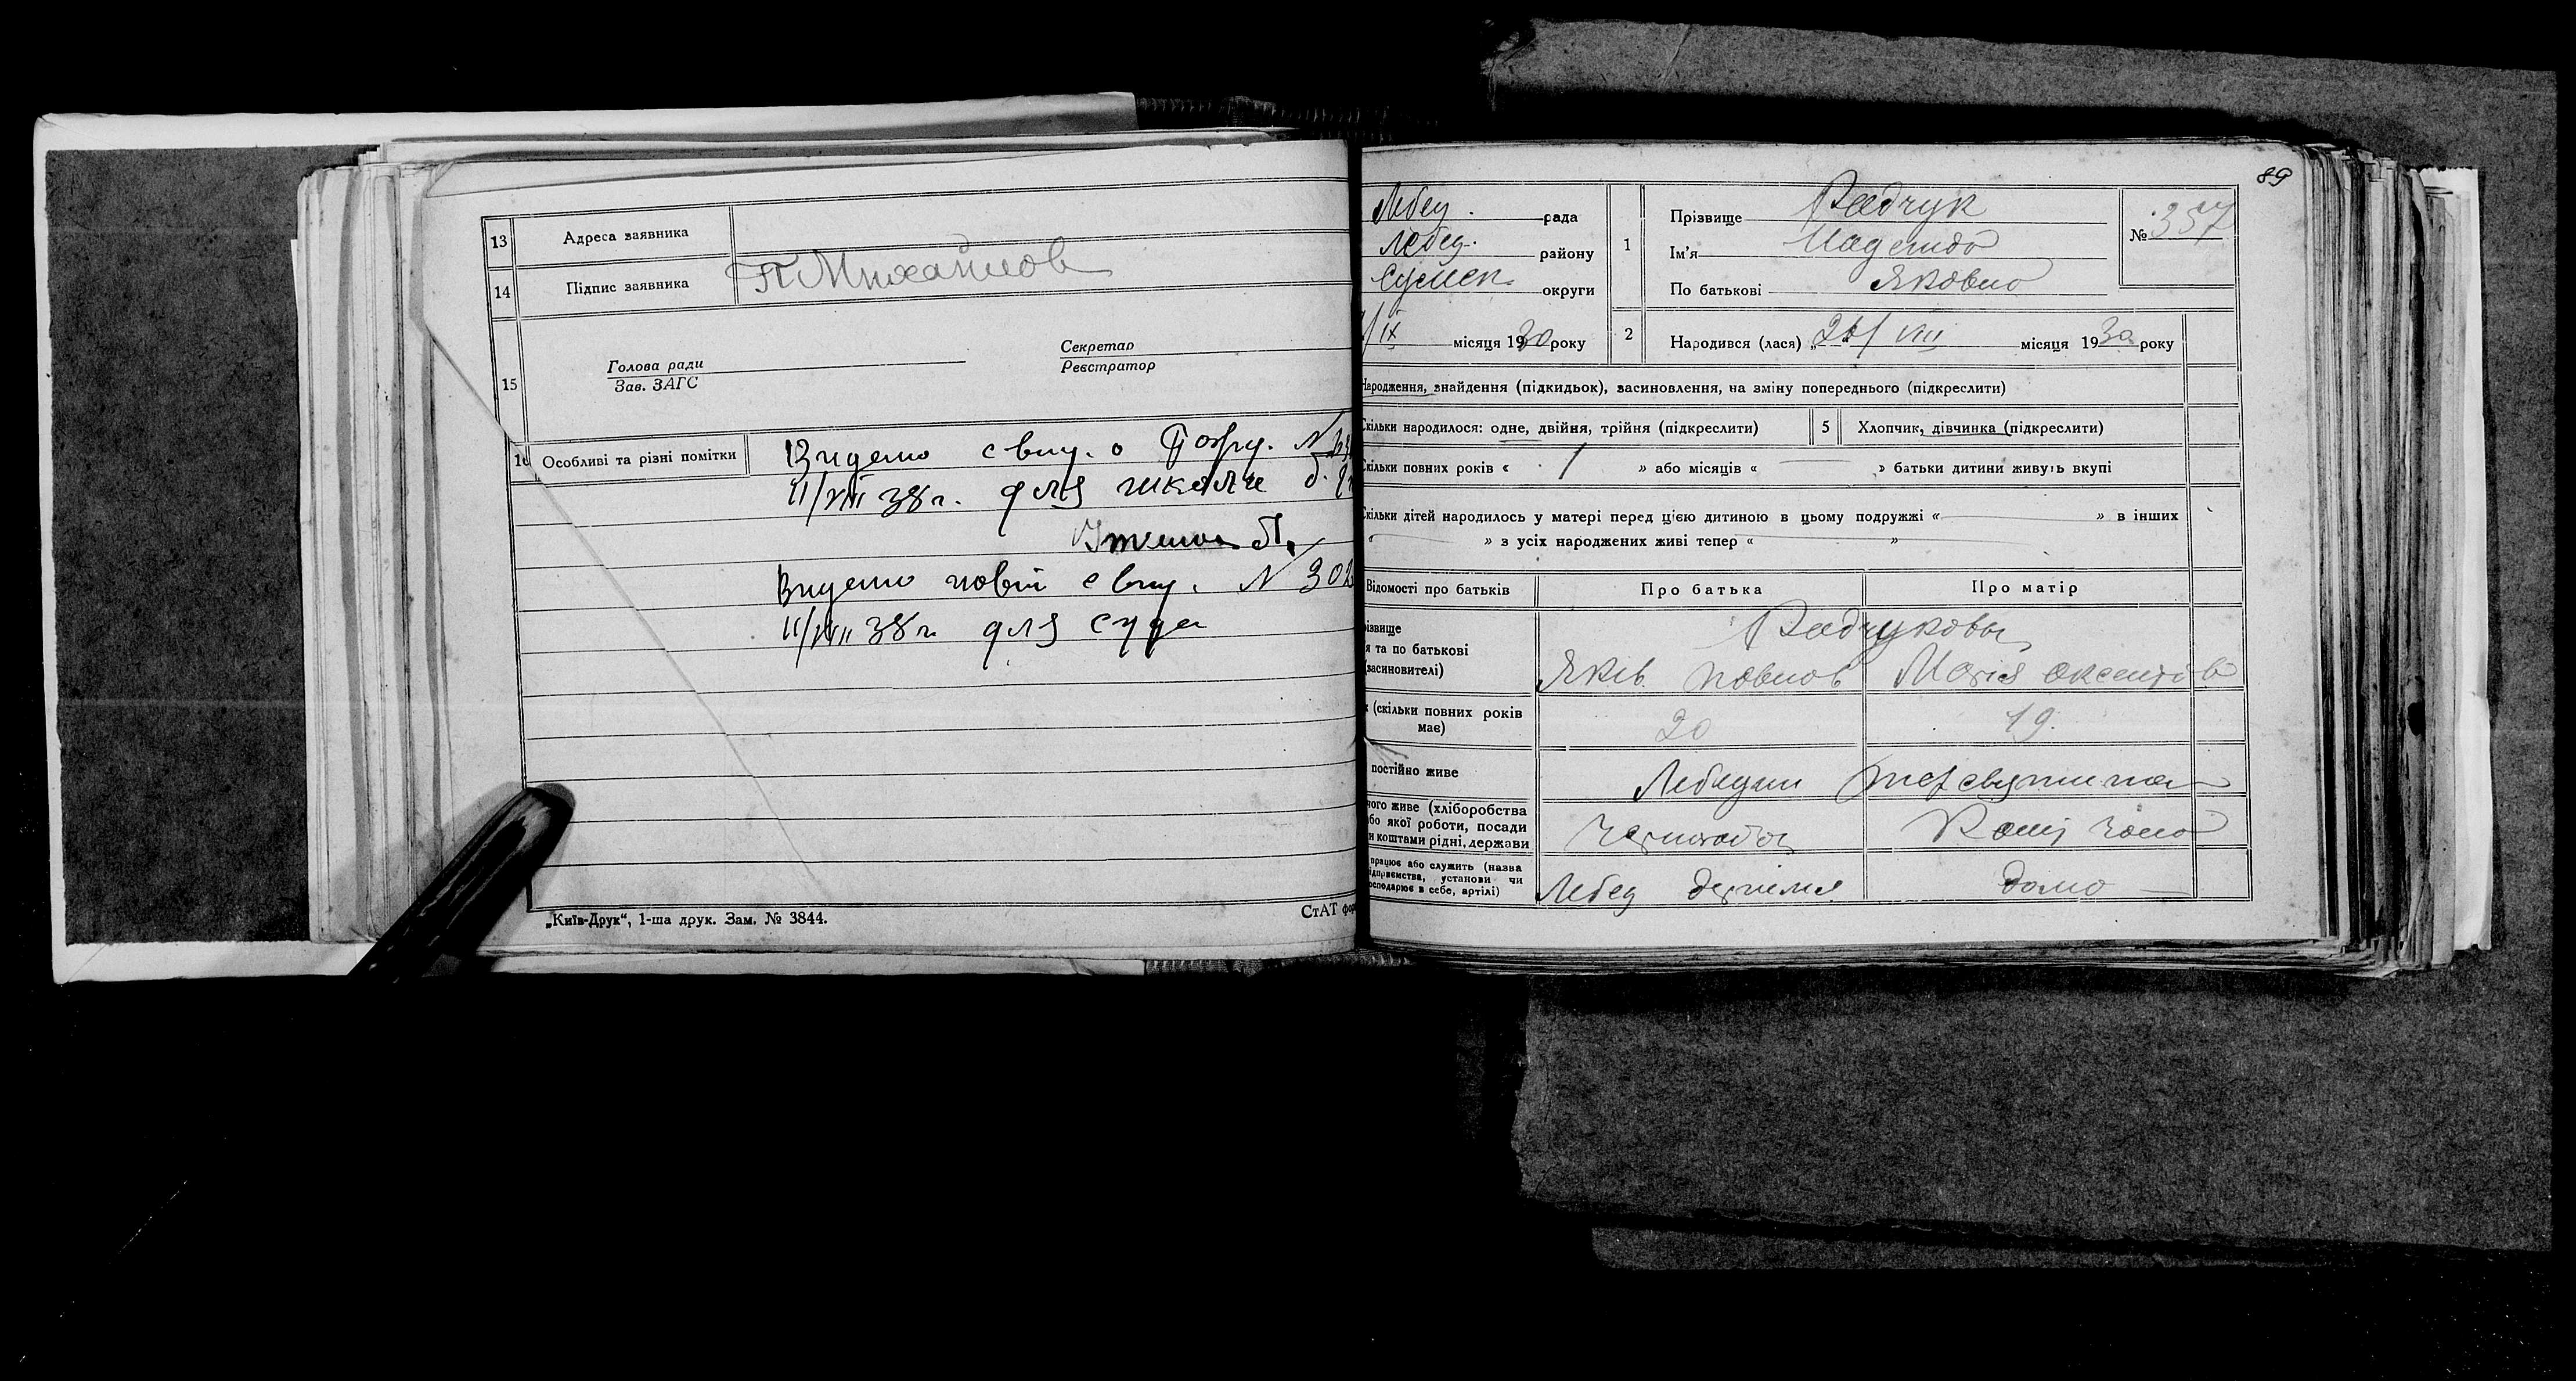 13 Адреса заявника
14 Підпис заявника П Михайлов
15 Голова ради
Зав. ЗАГС
Секретар
Реєстратор
16 Особливі та різні помітки
Видано
II/VIII 38 г. для школи
Видано новий свид. № 302
II/VIII 38 г. для суда
„Київ-Друк“, 1-ша друк. Зам. № 3844.
СтАТ
89
Лебед. рада
Лебед. району
Сумск. округи
IX місяця 1930 року
1 Прізвище Радчук
Ім’я Надежда
По батькові Яковна
№ 357
2 Народився (лася) „26/VIII місяця 1930 року
Народження, знайдення (підкидьок), засиновлення, на зміну попереднього (підкреслити)
Скільки народилося: одне, двійня, трійня (підкреслити)
5 Хлопчик, дівчинка (підкреслити)
Скільки повних років « 1 » або місяців « — » батьки дитини живуть вкупі
Скільки дітей народилось у матері перед цією дитиною в цьому подружжі « — » в інших
« — » з усіх народжених живі тепер « — »
Відомості про батьків
Про батька
Про матір
різвище
я та по батькові
(засиновителі)
Радчуковы
Яків Павлов
Марія
(скільки повних років
має)
20
19.
постійно живе
Лебедин
чого живе (хліборобства
або якої роботи, посади
и коштами рідні, держави
Чернороб
працює або служить (назва
підприємства, установи чи
господарює в себе, артілі)
Лебед
дома —